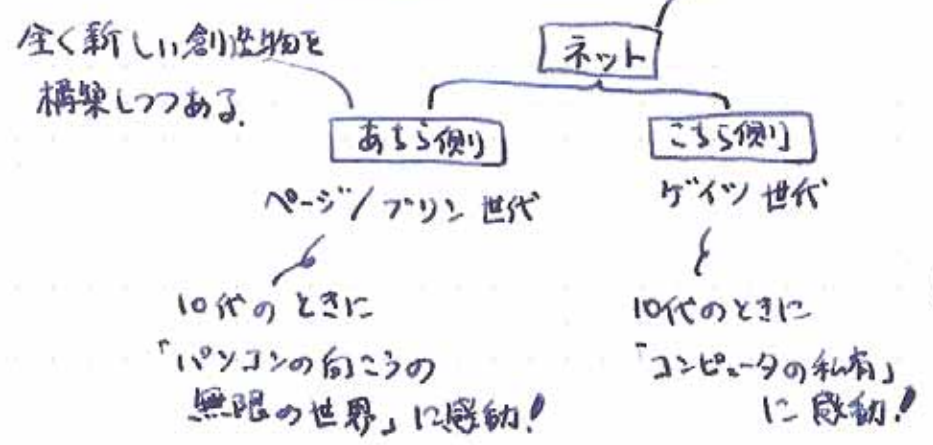 全く新しい創造物を
構築しつつある.
ネット
あちら側
こちら側
ページ/ブリン 世代
ゲイツ 世代
10代のときに
「パソコンの向こうの
無限の世界」に感動!
10代のときに
「コンピュータの私有」
に感動!